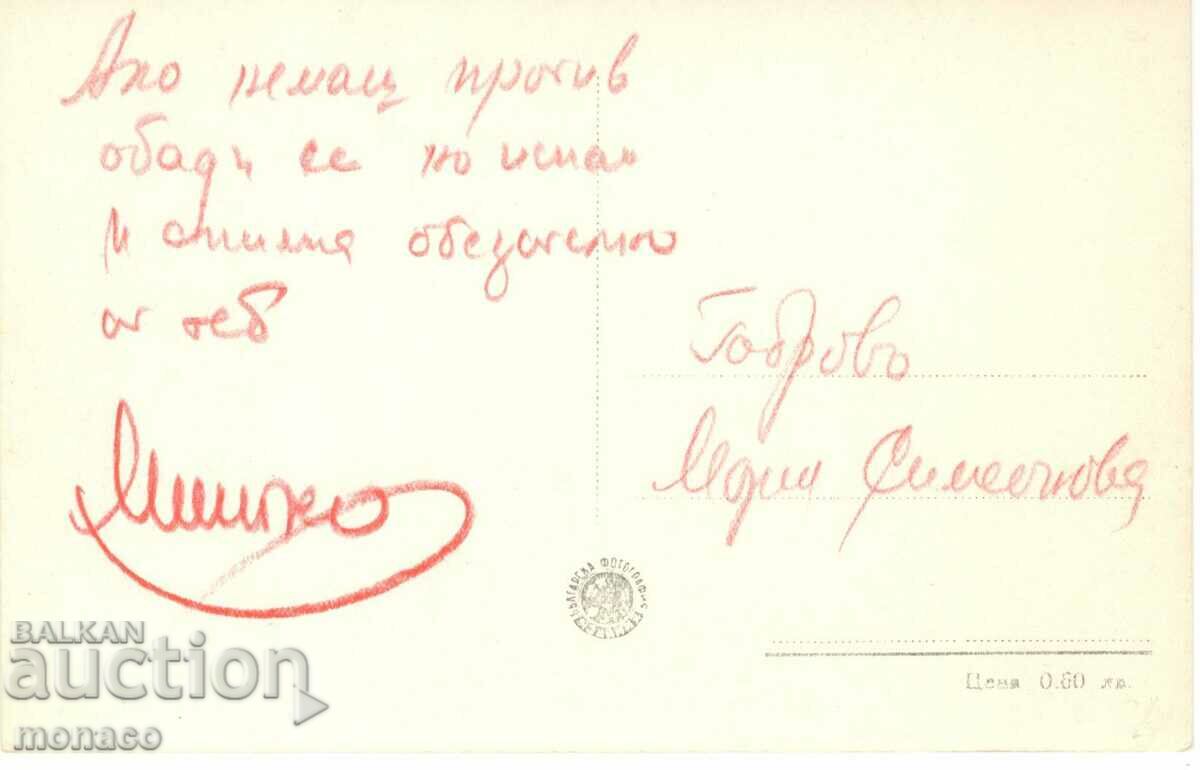 Ако немаш против
обади се но
и
от теб
Минко
Габрово
Мария Симеонова
БЪЛГАРСКА ФОТОГРАФИЯ
Цена 0.60 лв.
BALKAN
auction
monaco